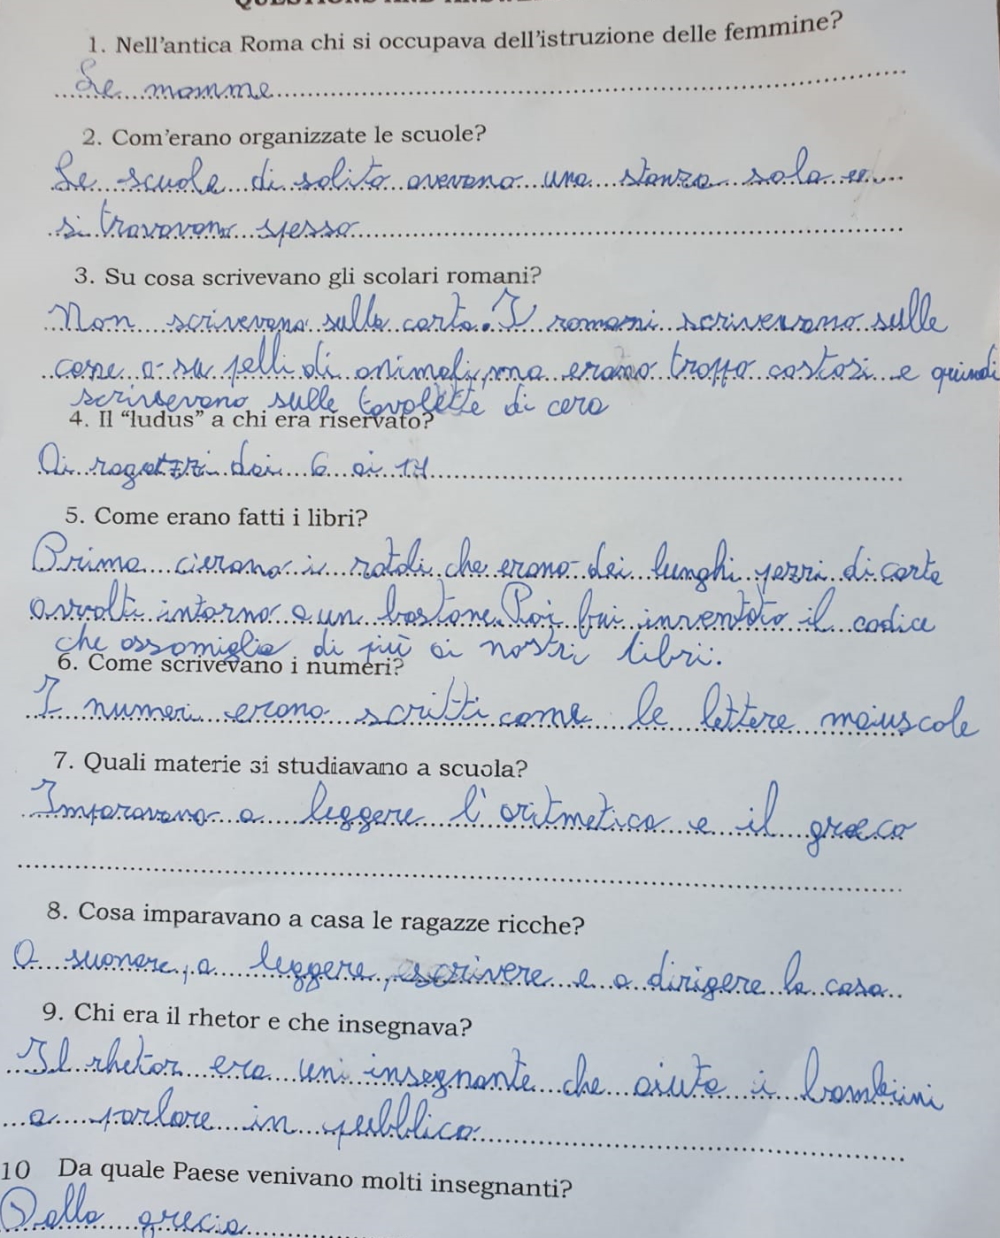 1. Nell'antica Roma chi si occupava dell'istruzione delle femmine?
Le mamme
2. Com'erano organizzate le scuole?
Le scuole di solito avevano una stanza sola e
si trovavano spesso
3. Su cosa scrivevano gli scolari romani?
Non scrivevano sulla carta. I romani scrivevano sulle
o su pelli di animali, ma erano troppo costosi e quindi
scrivevano sulle tavolette di cera
4. Il "ludus" a chi era riservato?
Ai ragazzi dai 6 ai
5. Come erano fatti i libri?
Prima cierano i rotoli che erano dei lunghi pezzi di carta
avvolti intorno a un bastone. Poi fui inventato il codice
che assomiglia di più ai nostri libri.
6. Come scrivevano i numeri?
I numeri erano scritti come le lettere maiuscole
7. Quali materie si studiavano a scuola?
Imparavano a leggere l'aritmetica e il greco
8. Cosa imparavano a casa le ragazze ricche?
A suonare, a leggere, scrivere e a dirigere la casa
9. Chi era il rhetor e che insegnava?
Il rhetor era un insegnante che aiuta i bambini
a parlare in pubblico
10 Da quale Paese venivano molti insegnanti?
Dalla grecia